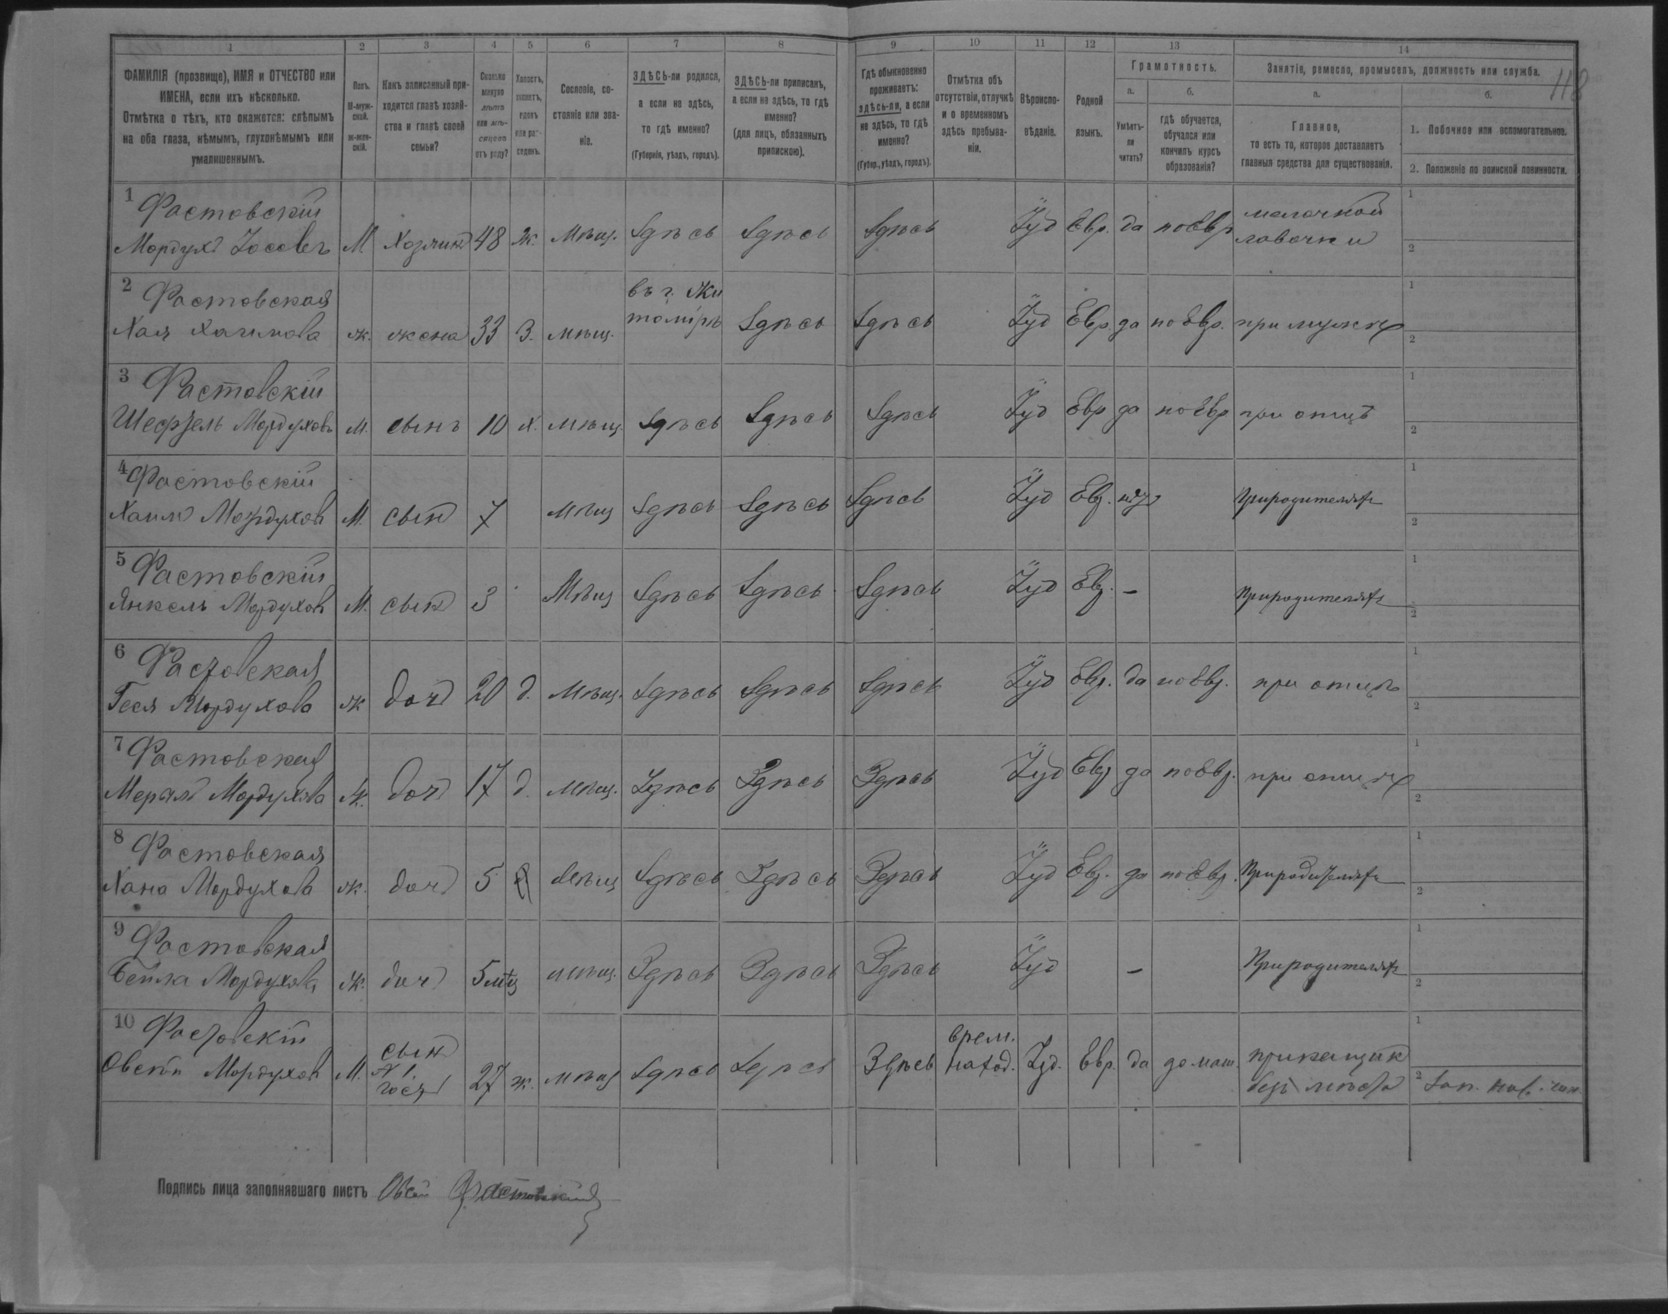 1 2 3 4 5 6 7 8 9 10 11 12 13 14
ФАМИЛІЯ (прозвище), ИМЯ и ОТЧЕСТВО или
ИМЕНА, если ихъ нѣсколько.
Отмѣтка о тѣхъ, кто окажется: слѣпымъ
на оба глаза, нѣмымъ, глухонѣмымъ или
умалишеннымъ.
Полъ.
М-муж-
ской.
ж-жен-
скій.
Какъ записанный при-
ходится главѣ хозяй-
ства и главѣ своей
семьи?
Сколько
минуло
лѣтъ
или мѣ-
сяцевъ
отъ роду?
Холостъ,
женатъ,
вдовъ
или раз-
веденъ.
Сословіе, со-
стояніе или зва-
ніе.
ЗДѢСЬ-ли родился,
а если не здѣсь,
то гдѣ именно?
(Губернія, уѣздъ, городъ).
ЗДѢСЬ-ли приписанъ,
а если не здѣсь, то гдѣ
именно?
(для лицъ, обязанныхъ
припискою).
Гдѣ обыкновенно
проживаетъ:
здѣсь-ли, а если
не здѣсь, то гдѣ
именно?
(Губер., уѣздъ, городъ).
Отмѣтка объ
отсутствіи, отлучкѣ
и о временномъ
здѣсь пребыва-
ніи.
Вѣроиспо-
вѣданіе.
Родной
языкъ.
Грамотность.
а.
Умѣетъ-
ли
читать?
б.
гдѣ обучается,
обучался или
кончилъ курсъ
образованія?
Занятіе, ремесло, промыселъ, должность или служба.
118
а.
Главное,
то есть то, которое доставляетъ
главныя средства для существованія.
б.
1. Побочное или вспомогательное.
2. Положеніе по воинской повинности.
1 Фастовскій
Мордухъ Іосевъ М Хозяинъ 48 ж. Мѣщ. Здѣсь Здѣсь Здѣсь Іуд Евр. да по Евр мелочной
лавочки
1
2
2 Фастовская
Хая Хаимова ж. жена 33 З. мѣщ. въ г. Жи
томірѣ Здѣсь Здѣсь Іуд Евр. да по Евр. при мужѣ
1
2
3 Фастовскій
Мордухов М. сынъ 10 х. мѣщ. Здѣсь Здѣсь Здѣсь Іуд Евр да по Евр при отцѣ
1
2
4 Фастовскій
Хаимъ Мордухов М. сынъ 7 мѣщ Здѣсь Здѣсь Здѣсь Іуд Евр. При родителяхъ
1
2
5 Фастовскій
Янкель Мордухов М. сынъ 3 Мѣщ Здѣсь Здѣсь Здѣсь Іуд Евр. – При родителяхъ
1
2
6 Фастовская
Геся Мордухова ж доч 20 д. мѣщ. Здѣсь Здѣсь Здѣсь Іуд Евр. да по Евр. при отцѣ
1
2
7 Фастовская
Мордухова ж. доч 17 д. мѣщ. Здѣсь Здѣсь Здѣсь Іуд Евр да по Евр. при отцѣ
1
2
8 Фастовская
Хана Мордухова ж. доч 5 мѣщ Здѣсь Здѣсь Здѣсь Іуд Евр. да по Евр. При родителяхъ
1
2
9 Фастовская
Бейла Мордухова ж. доч 5 мѣц мѣщ. Здѣсь Здѣсь Здѣсь Іуд – При родителяхъ
1
2
10 Фастовскій
Овсѣй Мордухов М. сын
№ 1.
гость 27 ж. мѣщ Здѣсь Здѣсь Здѣсь врем.
наход. Іуд. Евр. да домаш. прикащик
безъ мѣста
1
2 Зап.
Подпись лица заполнявшаго листъ Овсѣй Фастовскій